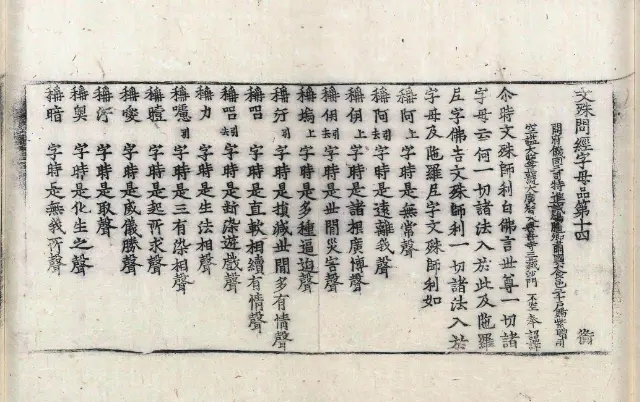 文殊問經字母品第十四 衡
開府儀同三司特進試鴻臚卿肅國公食邑三千戶賜紫贈司
空謚大鑒正號大廣智大興善寺三藏沙門不空奉 詔譯
尒時文殊師利白佛言世尊一切諸
字母云何一切諸法入於此及陁羅
尼字佛告文殊師利一切諸法入於
字母及陁羅尼字文殊師利如
稱阿上字時是無常聲
稱阿引去字時是遠離我聲
稱伊上字時是諸根廣博聲
稱伊引去字時是世間災害聲
稱塢上字時是多種逼迫聲
稱汙引字時是損減世間多有情聲
稱呂字時是直軟相續有情聲
稱呂引去字時是斷染遊戲聲
稱力字時是生法相聲
稱嚧引字時是三有染相聲
稱曀字時是起所求聲
稱愛字時是威儀勝聲
稱汙字時是取聲
稱奧字時是化生之聲
稱暗字時是無我所聲